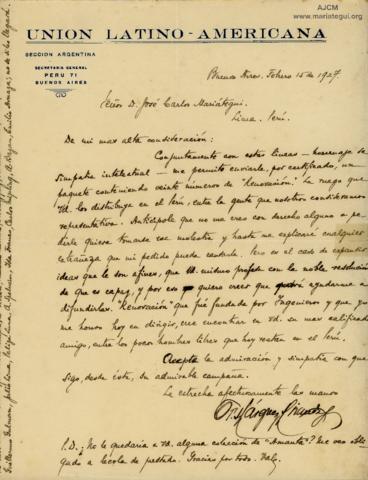 AJCM
www.mariategui.org
UNION LATINO-AMERICANA
SECCION ARGENTINA
SECRETARIA GENERAL
PERU 71
BUENOS AIRES
Buenos Aires. Febrero 15 de 1927.
Señor D. José Carlos Mariátegui.
Lima. Perú.
De mi mas alta consideración:
Conjuntamente con estas lineas — homenaje de
simpatia intelectual — me permito enviarle, por certificado, un
paquete conteniendo veinte números de "Renovación". Le ruego que
Vd. los distribuya en el Perú, entre la gente que nosotros consideramos
representativa. Anticípole que no me creo con derecho alguno a pe-
dirle quiera tomarse esa molestia y hasta me explicaré cualquier
extrañeza que mi pedido pueda causarle. Pero es el caso de expandir
ideas que le son afines, que Vd. mismo profesa con la noble resolución
de que es capaz, y por eso quiero creer que querrá ayudarme a
difundirlas. "Renovación" que fué fundada por Ingenieros y que yo
me honro hoy en dirigir, cree encontrar en Vd. su mas calificado
amigo, entre los pocos hombres libres que hoy restan en el Perú.
Acepte la admiración y simpatia con que
sigo, desde ésta, su admirable campaña.
Le estrecha afectuosamente las manos
P.D.: ¿No le quedaria a Vd. alguna colección de "Amauta"? Me veo obli-
gado a leerla de prestado. Gracias por todo. Vale.